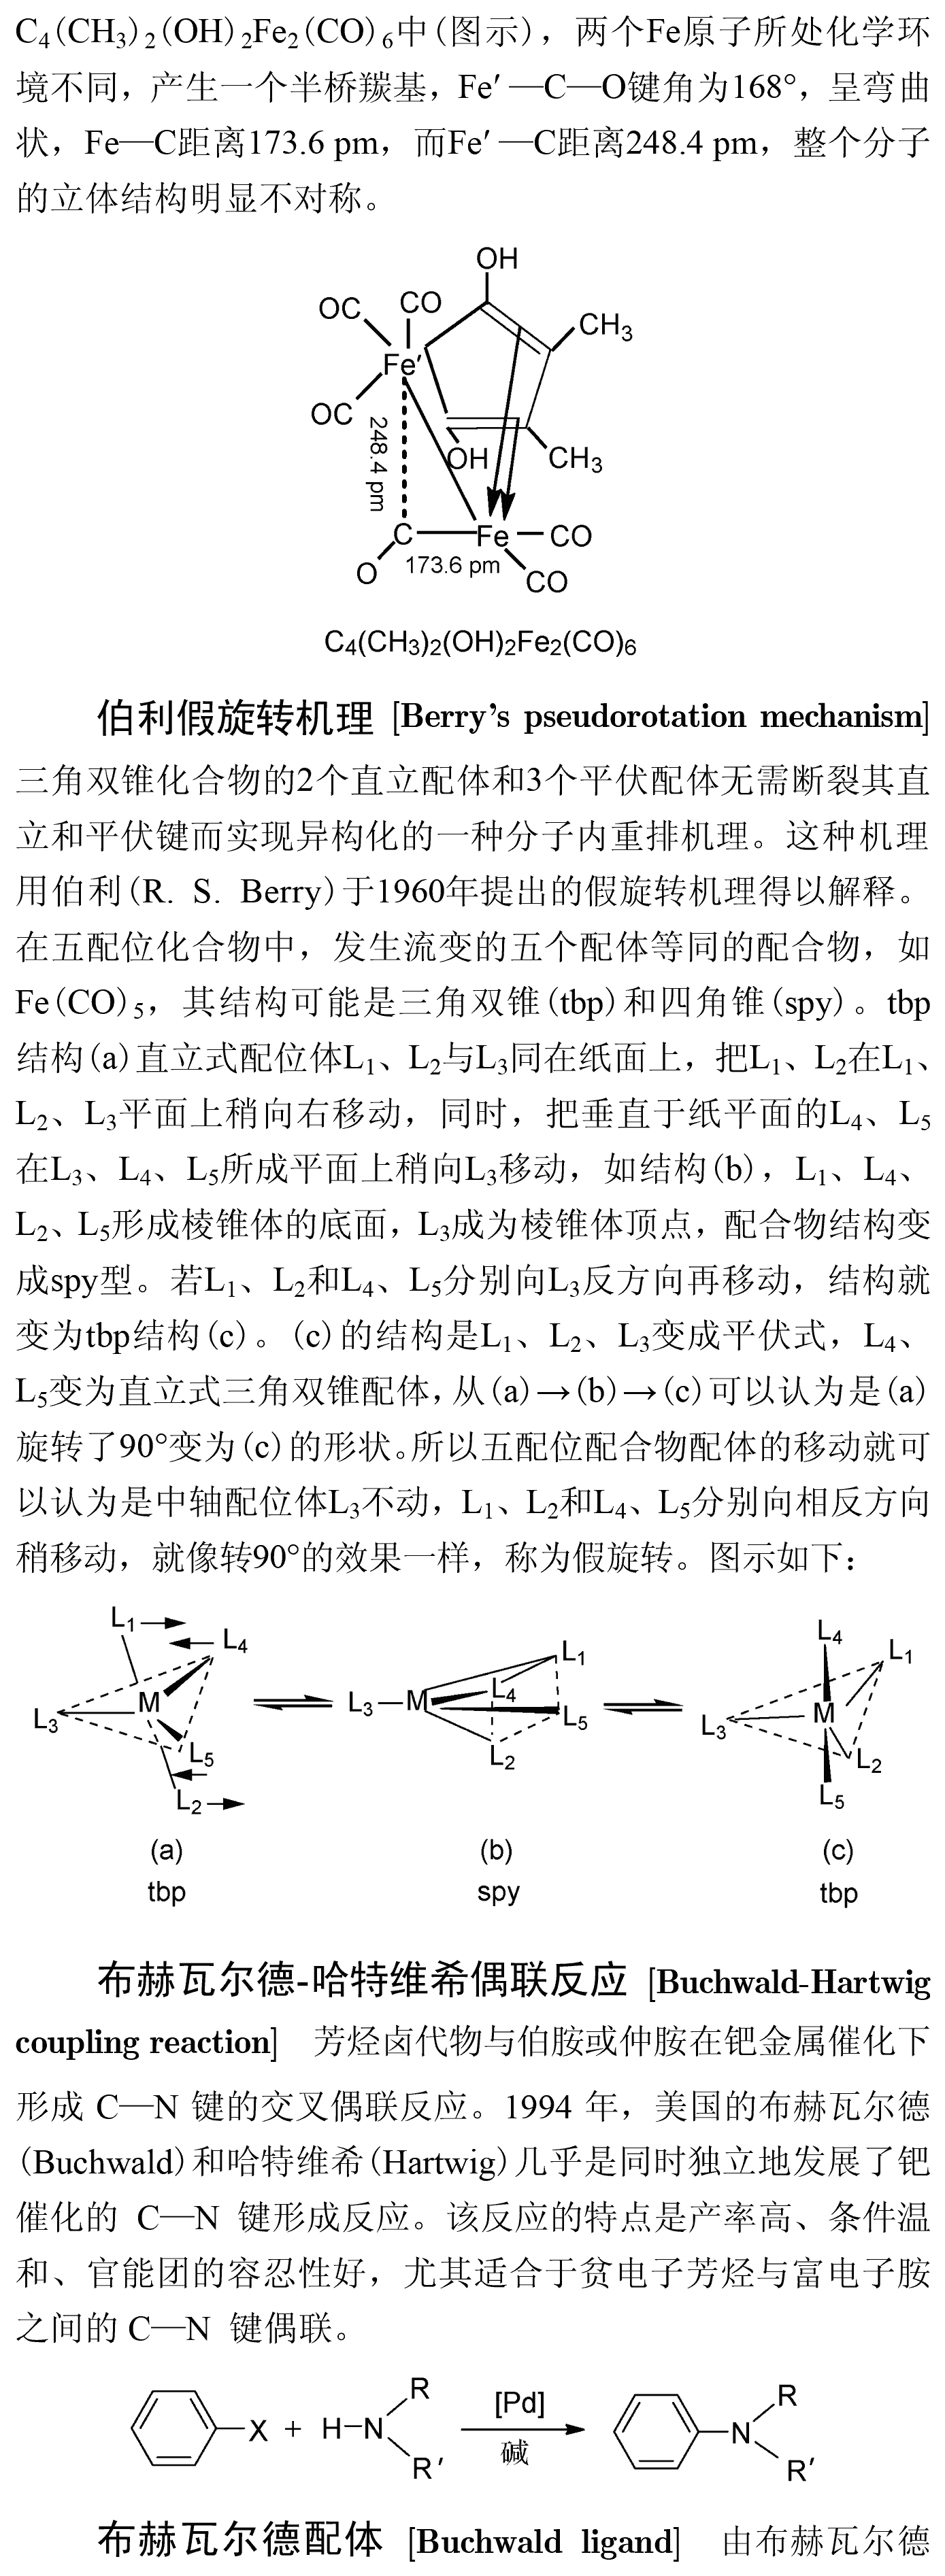 C₄(CH₃)₂(OH)₂Fe₂(CO)₆中(图示)，两个Fe原子所处化学环
境不同，产生一个半桥羰基，Fe′—C—O键角为168°，呈弯曲
状，Fe—C距离173.6 pm，而Fe′—C距离248.4 pm，整个分子
的立体结构明显不对称。
OH
OC CO CH₃
Fe′
OC
248.4 pm
OH CH₃
C Fe CO
O 173.6 pm CO
C₄(CH₃)₂(OH)₂Fe₂(CO)₆
伯利假旋转机理 [Berry's pseudorotation mechanism]
三角双锥化合物的2个直立配体和3个平伏配体无需断裂其直
立和平伏键而实现异构化的一种分子内重排机理。这种机理
用伯利(R. S. Berry)于1960年提出的假旋转机理得以解释。
在五配位化合物中，发生流变的五个配体等同的配合物，如
Fe(CO)₅，其结构可能是三角双锥(tbp)和四角锥(spy)。tbp
结构(a)直立式配位体L₁、L₂与L₃同在纸面上，把L₁、L₂在L₁、
L₂、L₃平面上稍向右移动，同时，把垂直于纸平面的L₄、L₅
在L₃、L₄、L₅所成平面上稍向L₃移动，如结构(b)，L₁、L₄、
L₂、L₅形成棱锥体的底面，L₃成为棱锥体顶点，配合物结构变
成spy型。若L₁、L₂和L₄、L₅分别向L₃反方向再移动，结构就
变为tbp结构(c)。(c)的结构是L₁、L₂、L₃变成平伏式，L₄、
L₅变为直立式三角双锥配体，从(a)→(b)→(c)可以认为是(a)
旋转了90°变为(c)的形状。所以五配位配合物配体的移动就可
以认为是中轴配位体L₃不动，L₁、L₂和L₄、L₅分别向相反方向
稍移动，就像转90°的效果一样，称为假旋转。图示如下：
L₁ L₄ L₃ M L₅ L₂
L₃—M L₁ L₄ L₅ L₂
L₄ L₁ L₃ M L₂ L₅
(a) (b) (c)
tbp spy tbp
布赫瓦尔德-哈特维希偶联反应 [Buchwald-Hartwig
coupling reaction] 芳烃卤代物与伯胺或仲胺在钯金属催化下
形成 C—N 键的交叉偶联反应。1994 年，美国的布赫瓦尔德
(Buchwald)和哈特维希(Hartwig)几乎是同时独立地发展了钯
催化的 C—N 键形成反应。该反应的特点是产率高、条件温
和、官能团的容忍性好，尤其适合于贫电子芳烃与富电子胺
之间的 C—N 键偶联。
X + H—N R R′ [Pd] 碱 N R R′
布赫瓦尔德配体 [Buchwald ligand] 由布赫瓦尔德